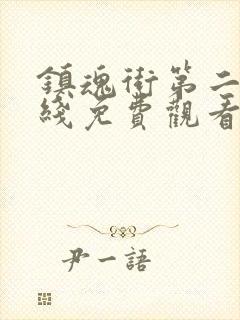 鎮魂街第二
綫免費觀看
尹一語